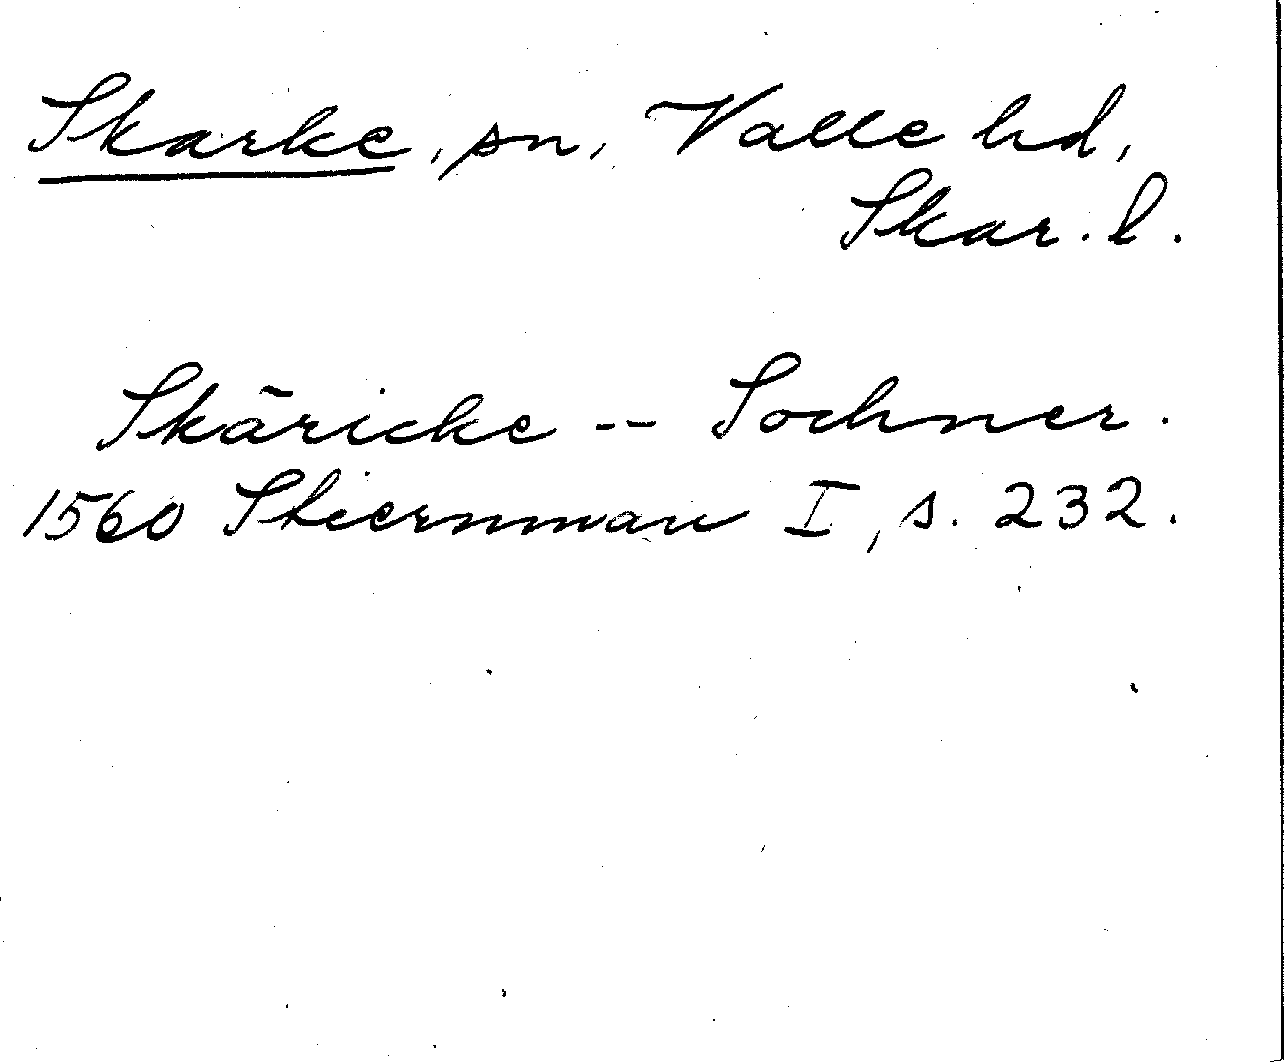 Skarke, sn, Valle hd,
Skar. l.
Skäricke -- Sochner.
1560 Stiernman I, s. 232.